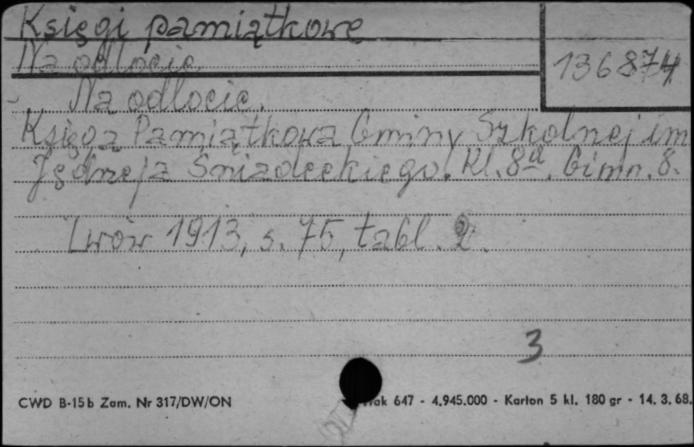 Księgi pamiątkowe
Na odlocie
136874
Na odlocie.
Księga Pamiątkowa Gminy Szkolnej im
Jędrzeja Śniadeckiego. Kl. 8a. Gimn. 8.
Lwów 1913, s. 75, tabl. 2.
3
CWD B-15b Zam. Nr 317/DW/ON
647 - 4.945.000 - Karton 5 kl. 180 gr - 14. 3. 68.